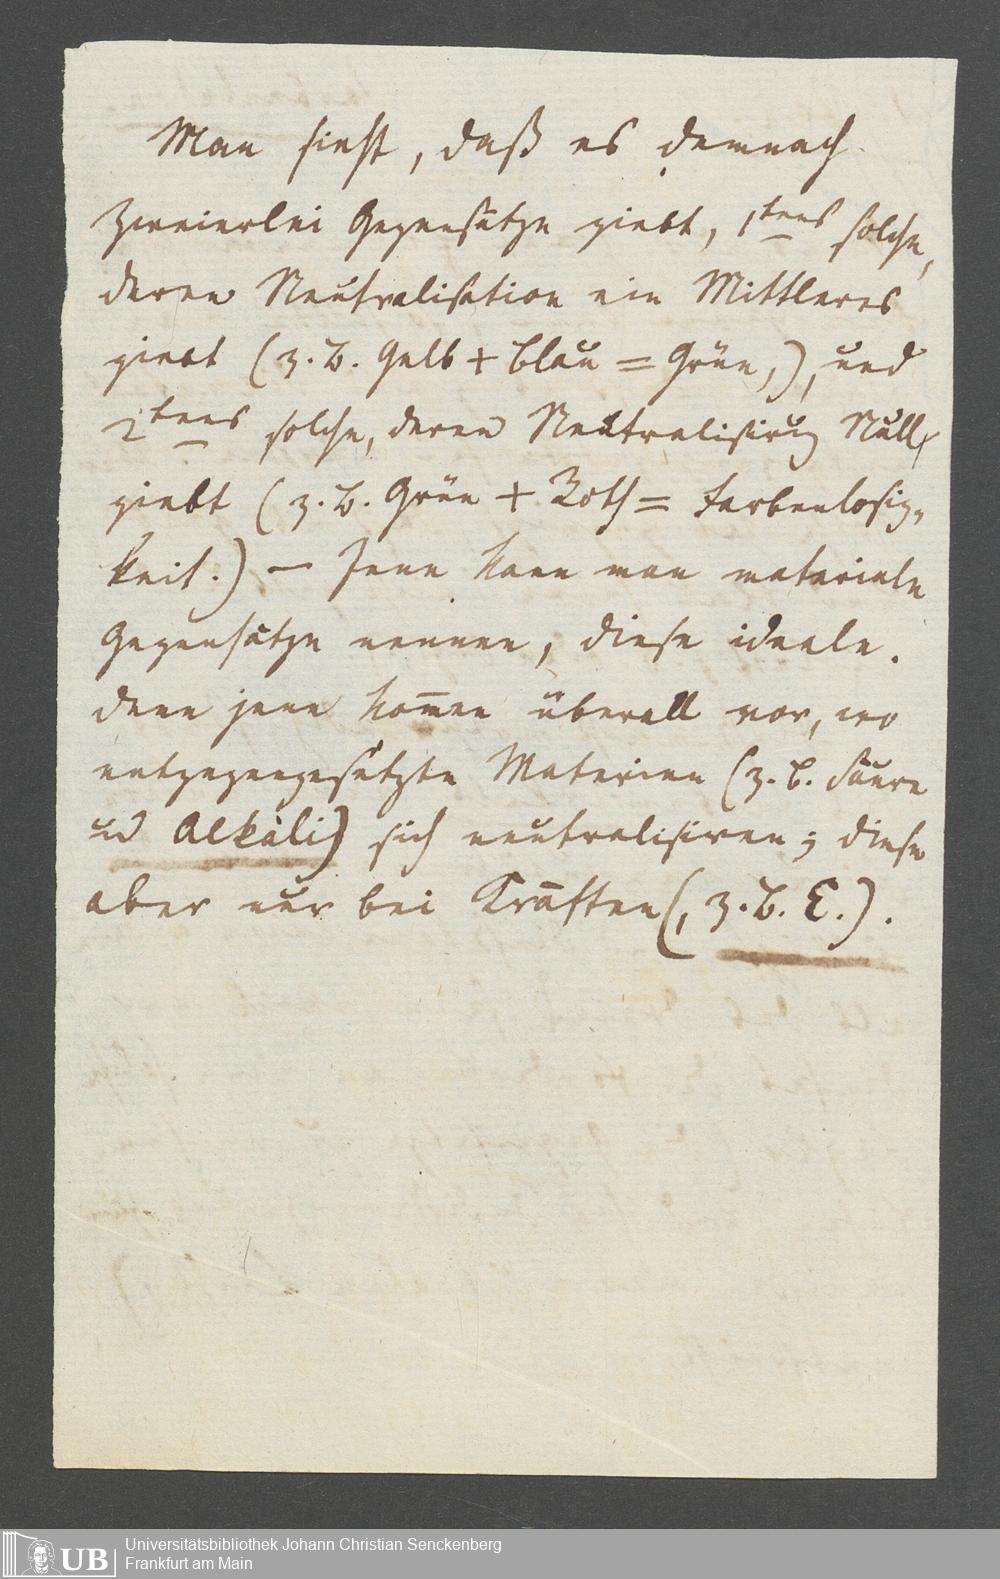 Man sieht, daß es demnach
zweierlei Gegensätze giebt, 1tens solche,
deren Neutralisation ein Mittleres
giebt (z. B. Gelb + Blau = Grün,), und
2tens solche, deren Neutralisirung Null
giebt (z. B. Grün + Roth = Farbenlosig-
keit.) — Jene kann man materiale
Gegensätze nennen, diese ideale.
denn jene kom̅en überall vor, wo
entgegengesetzte Materien (z. B. Säure
und Alkali) sich neutralisiren; diese
aber nur bei Kräften (, z. B. E.).
UB
Universitätsbibliothek Johann Christian Senckenberg
Frankfurt am Main